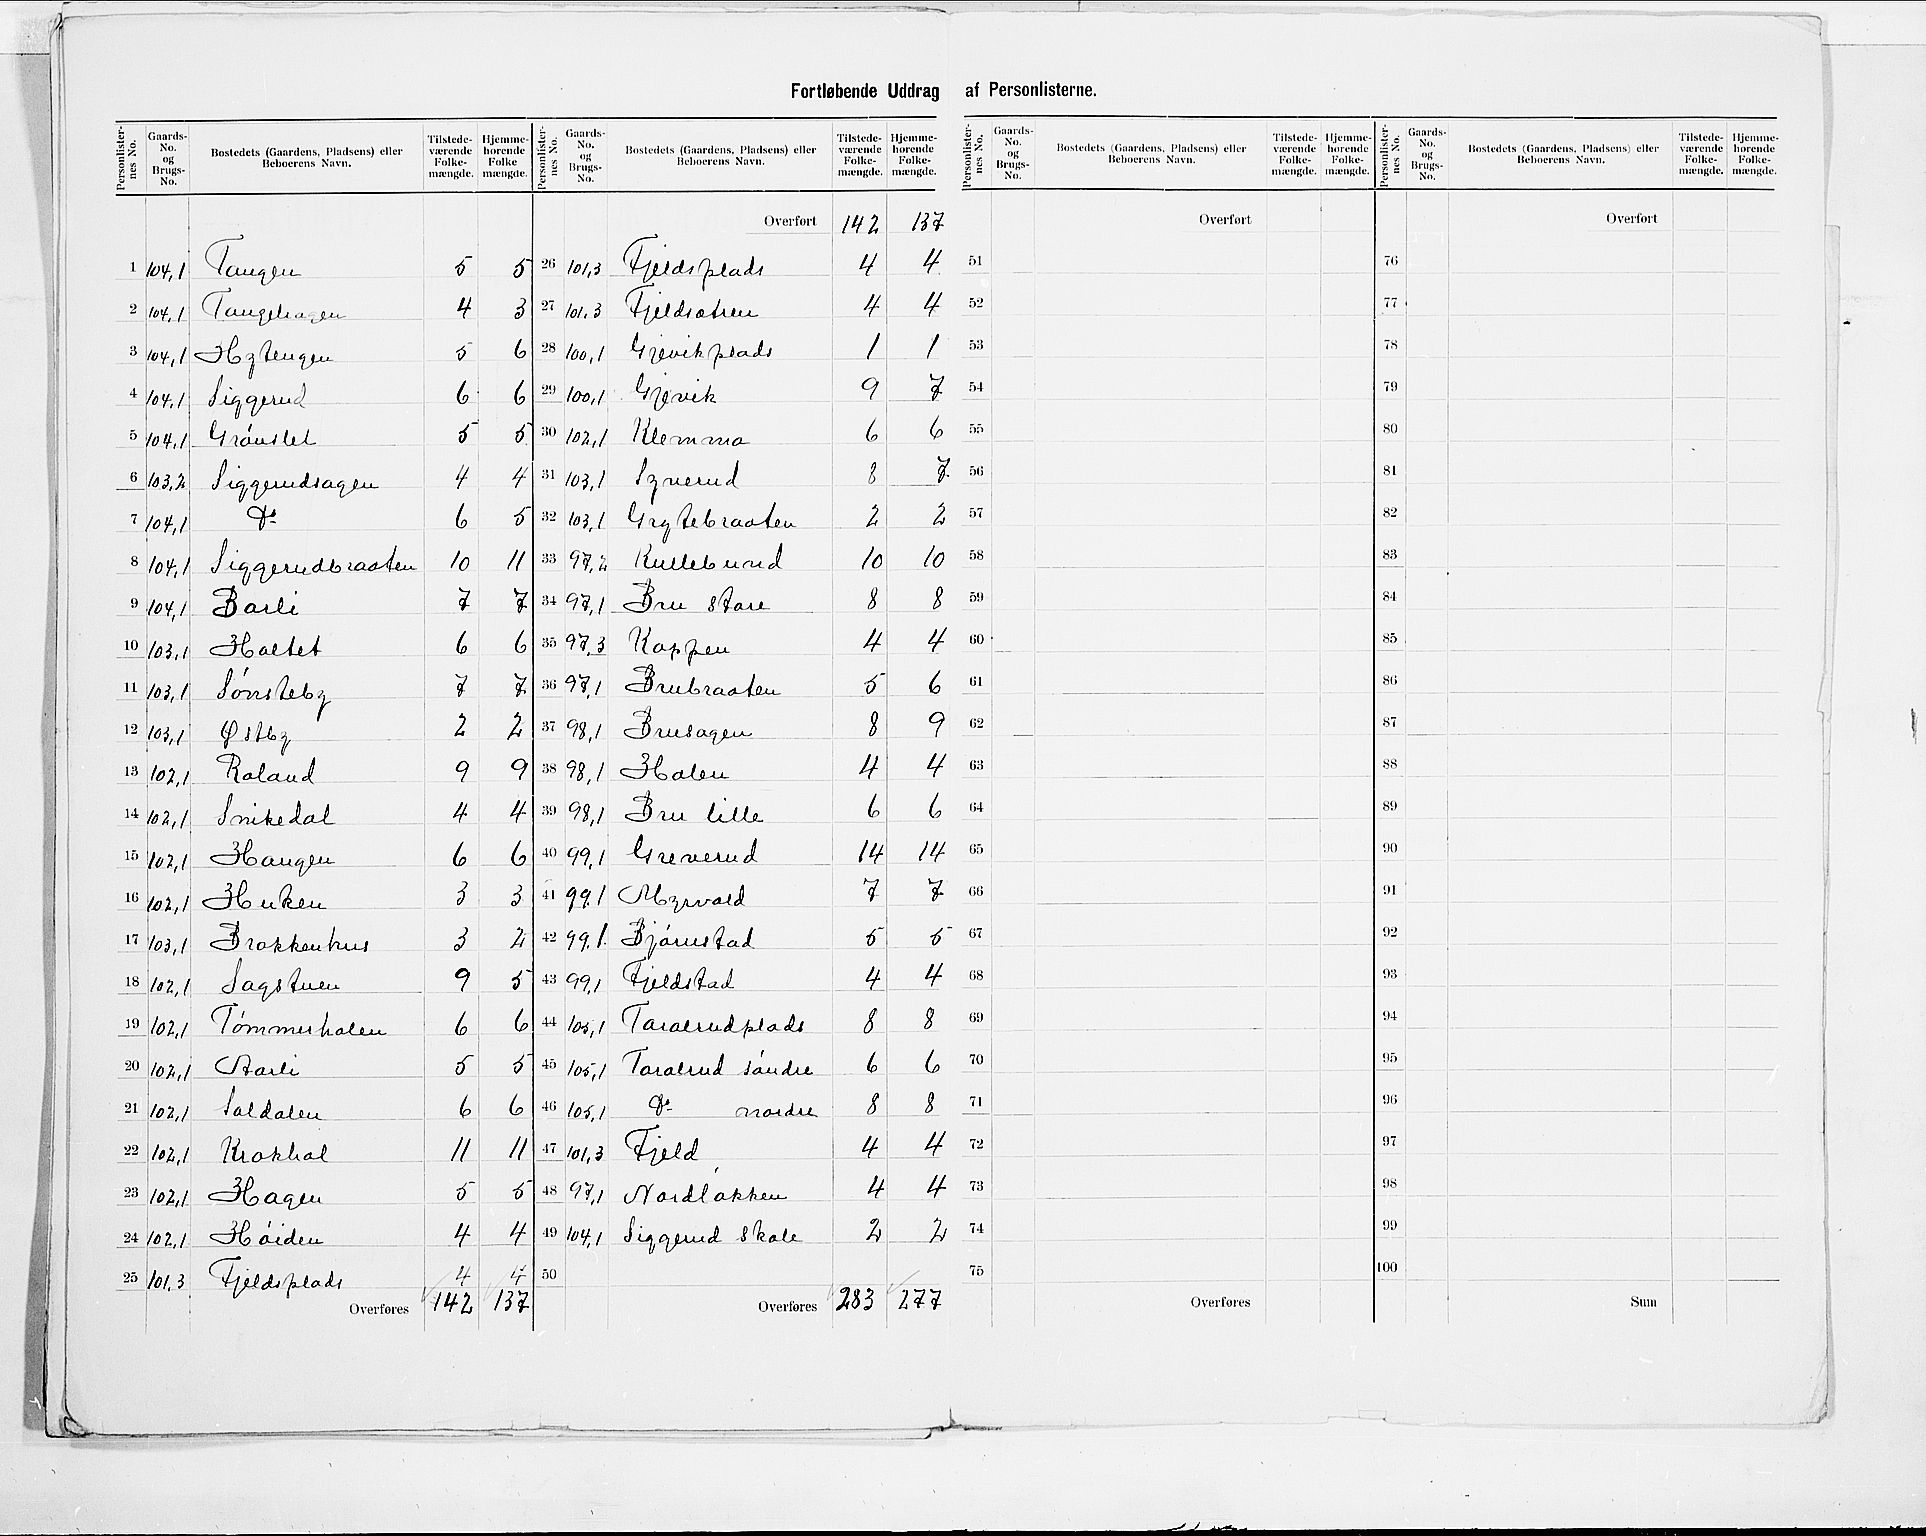 Fortløbende Uddrag af Personlisterne.
Personlister-nes No. | Gaards-No. og Brugs-No. | Bostedets (Gaardens, Pladsens) eller Beboerens Navn. | Tilstede-værende Folke-mængde. | Hjemme-hørende Folke mængde.
1 104,1 Tangen 5 5
2 104,1 Tangehagen 4 3
3 104,1 Hytengen 5 6
4 104,1 Siggerud 6 6
5 104,1 Grønslet 5 5
6 103,2 Siggerudsagen 4 4
7 104,1 Do 6 5
8 104,1 Siggerudbraaten 10 11
9 104,1 Barli 7 7
10 103,1 Holtet 6 6
11 103,1 Sønsteby 7 7
12 103,1 Østby 2 2
13 102,1 Roland 9 9
14 102,1 Snikedal 4 4
15 102,1 Haugen 6 6
16 102,1 Huken 3 3
17 103,1 Brakkenhus 3 2
18 102,1 Sagstuen 9 5
19 102,1 Tømmerholen 6 6
20 102,1 Aarli 5 5
21 102,1 Soldalen 6 6
22 102,1 Krokhol 11 11
23 102,1 Hagen 5 5
24 102,1 Høiden 4 4
25 101,3 Fjeldsplads 4 4
Overføres 142 137
Personlister-nes No. | Gaards-No. og Brugs-No. | Bostedets (Gaardens, Pladsens) eller Beboerens Navn. | Tilstede-værende Folke-mængde. | Hjemme-hørende Folke-mængde.
Overført 142 137
26 101,3 Fjeldsplads 4 4
27 101,3 Fjeldsatren 4 4
28 100,1 Gjevikplads 1 1
29 100,1 Gjevik 9 7
30 102,1 Klemma 6 6
31 103,1 Syverud 8 7
32 103,1 Grytebraaten 2 2
33 97,2 Kullebund 10 10
34 97,1 Bru store 8 8
35 97,3 Koppen 4 4
36 97,1 Brubraaten 5 6
37 98,1 Brusagen 8 9
38 98,1 Holen 4 4
39 98,1 Bru lille 6 6
40 99,1 Greverud 14 14
41 99,1 Myrvold 7 7
42 99,1 Bjørnstad 5 5
43 99,1 Fjeldstad 4 4
44 105,1 Taralrudplads 8 8
45 105,1 Taralrud søndre 6 6
46 105,1 Do nordre 8 8
47 101,3 Fjeld 4 4
48 97,1 Nordløkken 4 4
49 104,1 Siggerud skole 2 2
50
Overføres 283 277
Personlister-nes No. | Gaards-No. og Brugs-No. | Bostedets (Gaardens, Pladsens) eller Beboerens Navn. | Tilstede-værende Folke-mængde. | Hjemme-hørende Folke-mængde.
Overført
51
52
53
54
55
56
57
58
59
60
61
62
63
64
65
66
67
68
69
70
71
72
73
74
75
Overføres
Personlister-nes No. | Gaards-No. og Brugs-No. | Bostedets (Gaardens, Pladsens) eller Beboerens Navn. | Tilstede-værende Folke-mængde. | Hjemme-hørende Folke-mængde.
Overført
76
77
78
79
80
81
82
83
84
85
86
87
88
89
90
91
92
93
94
95
96
97
98
99
100
Sum